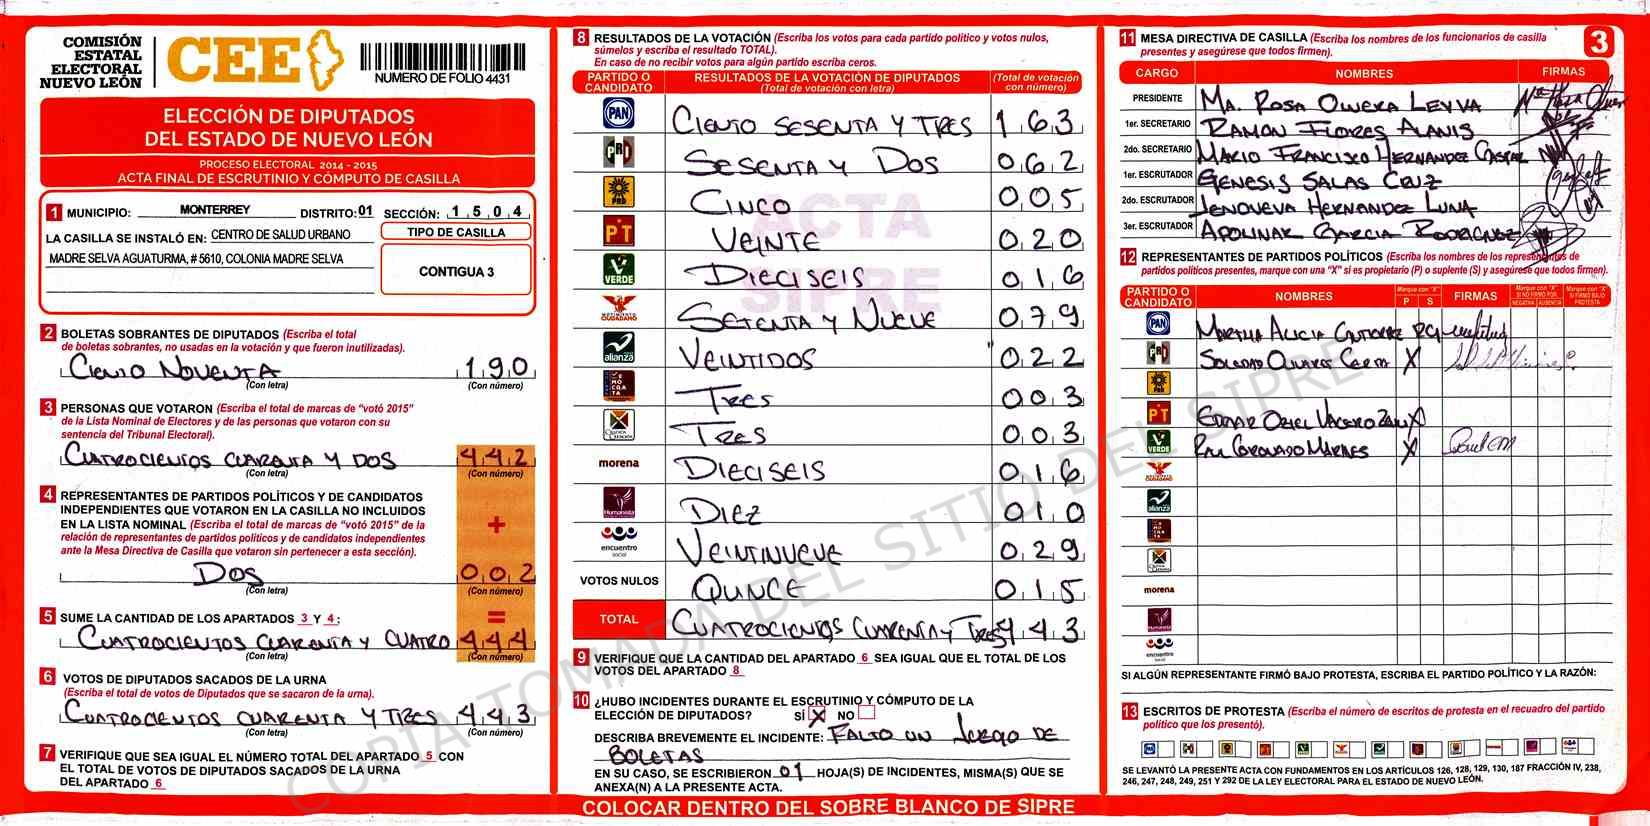 COMISIÓN
ESTATAL
ELECTORAL
NUEVO LEÓN
CEE
NUMERO DE FOLIO 4431
ELECCIÓN DE DIPUTADOS
DEL ESTADO DE NUEVO LEÓN
PROCESO ELECTORAL 2014 - 2015
ACTA FINAL DE ESCRUTINIO Y CÓMPUTO DE CASILLA
1 MUNICIPIO: MONTERREY DISTRITO: 01 SECCIÓN: 1,5,0,4
LA CASILLA SE INSTALÓ EN: CENTRO DE SALUD URBANO
MADRE SELVA AGUATURMA, # 5610, COLONIA MADRE SELVA
TIPO DE CASILLA
CONTIGUA 3
2 BOLETAS SOBRANTES DE DIPUTADOS (Escriba el total
de boletas sobrantes, no usadas en la votación y que fueron inutilizadas).
CIENTO NOVENTA 1,9,0
(Con letra) (Con número)
3 PERSONAS QUE VOTARON (Escriba el total de marcas de "votó 2015"
de la Lista Nominal de Electores y de las personas que votaron con su
sentencia del Tribunal Electoral).
CUATROCIENTOS CUARENTA Y DOS 4,4,2
(Con letra) (Con número)
4 REPRESENTANTES DE PARTIDOS POLÍTICOS Y DE CANDIDATOS
INDEPENDIENTES QUE VOTARON EN LA CASILLA NO INCLUIDOS
EN LA LISTA NOMINAL (Escriba el total de marcas de "votó 2015" de la
relación de representantes de partidos políticos y de candidatos independientes
ante la Mesa Directiva de Casilla que votaron sin pertenecer a esta sección).
+
DOS 0,0,2
(Con letra) (Con número)
5 SUME LA CANTIDAD DE LOS APARTADOS 3 Y 4: =
CUATROCIENTOS CUARENTA Y CUATRO 4,4,4
(Con letra) (Con número)
6 VOTOS DE DIPUTADOS SACADOS DE LA URNA
(Escriba el total de votos de Diputados que se sacaron de la urna).
CUATROCIENTOS CUARENTA Y TRES 4,4,3
(Con letra) (Con número)
7 VERIFIQUE QUE SEA IGUAL EL NÚMERO TOTAL DEL APARTADO 5 CON
EL TOTAL DE VOTOS DE DIPUTADOS SACADOS DE LA URNA
DEL APARTADO 6
8 RESULTADOS DE LA VOTACIÓN (Escriba los votos para cada partido político y votos nulos,
súmelos y escriba el resultado TOTAL).
En caso de no recibir votos para algún partido escriba ceros.
PARTIDO O CANDIDATO RESULTADOS DE LA VOTACIÓN DE DIPUTADOS (Total de votación con letra) (Total de votación con número)
PAN CIENTO SESENTA Y TRES 1,6,3
PRD SESENTA Y DOS 0,6,2
PRD CINCO 0,0,5
PT VEINTE 0,2,0
VERDE DIECISEIS 0,1,6
MOVIMIENTO CIUDADANO SETENTA Y NUEVE 0,7,9
alianza VEINTIDOS 0,2,2
DEMOCRATA TRES 0,0,3
CRUZADA CIUDADANA TRES 0,0,3
morena DIECISEIS 0,1,6
Humanista DIEZ 0,1,0
encuentro social VEINTINUEVE 0,2,9
VOTOS NULOS QUINCE 0,1,5
TOTAL CUATROCIENTOS CUARENTA Y TRES 4,4,3
ACTA
SIPRE
9 VERIFIQUE QUE LA CANTIDAD DEL APARTADO 6 SEA IGUAL QUE EL TOTAL DE LOS
VOTOS DEL APARTADO 8
10 ¿HUBO INCIDENTES DURANTE EL ESCRUTINIO Y CÓMPUTO DE LA
ELECCIÓN DE DIPUTADOS? SÍ X NO
DESCRIBA BREVEMENTE EL INCIDENTE: FALTO UN JUEGO DE
BOLETAS
EN SU CASO, SE ESCRIBIERON 01 HOJA(S) DE INCIDENTES, MISMA(S) QUE SE
ANEXA(N) A LA PRESENTE ACTA.
11 MESA DIRECTIVA DE CASILLA (Escriba los nombres de los funcionarios de casilla
presentes y asegúrese que todos firmen).
3
CARGO NOMBRES FIRMAS
PRESIDENTE MA. ROSA OLVERA LEYVA
1er. SECRETARIO RAMON FLORES ALANIS
2do. SECRETARIO MARIO FRANCISCO HERNANDEZ
1er. ESCRUTADOR GENESIS SALAS CRUZ
2do. ESCRUTADOR JENOVEVA HERNANDEZ LUNA
3er. ESCRUTADOR APOLINAR GARCIA RODRIGUEZ
12 REPRESENTANTES DE PARTIDOS POLÍTICOS (Escriba los nombres de los representantes de
partidos políticos presentes, marque con una "X" si es propietario (P) o suplente (S) y asegúrese que todos firmen).
PARTIDO O CANDIDATO NOMBRES Marque con "X" P S FIRMAS Marque con "X" SI NO FIRMÓ POR: NEGATIVA AUSENCIA Marque con "X" SI FIRMÓ BAJO PROTESTA
PAN MARTHA ALICIA GUTIERREZ RG
PRI SOLEDAD X
PRD
PT X
VERDE CORONADO X
MOVIMIENTO CIUDADANO
alianza
DEMOCRATA
CRUZADA CIUDADANA
morena
Humanista
encuentro social
SI ALGÚN REPRESENTANTE FIRMÓ BAJO PROTESTA, ESCRIBA EL PARTIDO POLÍTICO Y LA RAZÓN:
13 ESCRITOS DE PROTESTA (Escriba el número de escritos de protesta en el recuadro del partido
político que los presentó).
SE LEVANTÓ LA PRESENTE ACTA CON FUNDAMENTOS EN LOS ARTÍCULOS 126, 128, 129, 130, 187 FRACCIÓN IV, 238,
246, 247, 248, 249, 251 Y 292 DE LA LEY ELECTORAL PARA EL ESTADO DE NUEVO LEÓN.
COLOCAR DENTRO DEL SOBRE BLANCO DE SIPRE
COPIA TOMADA DEL SITIO DEL SIPRE